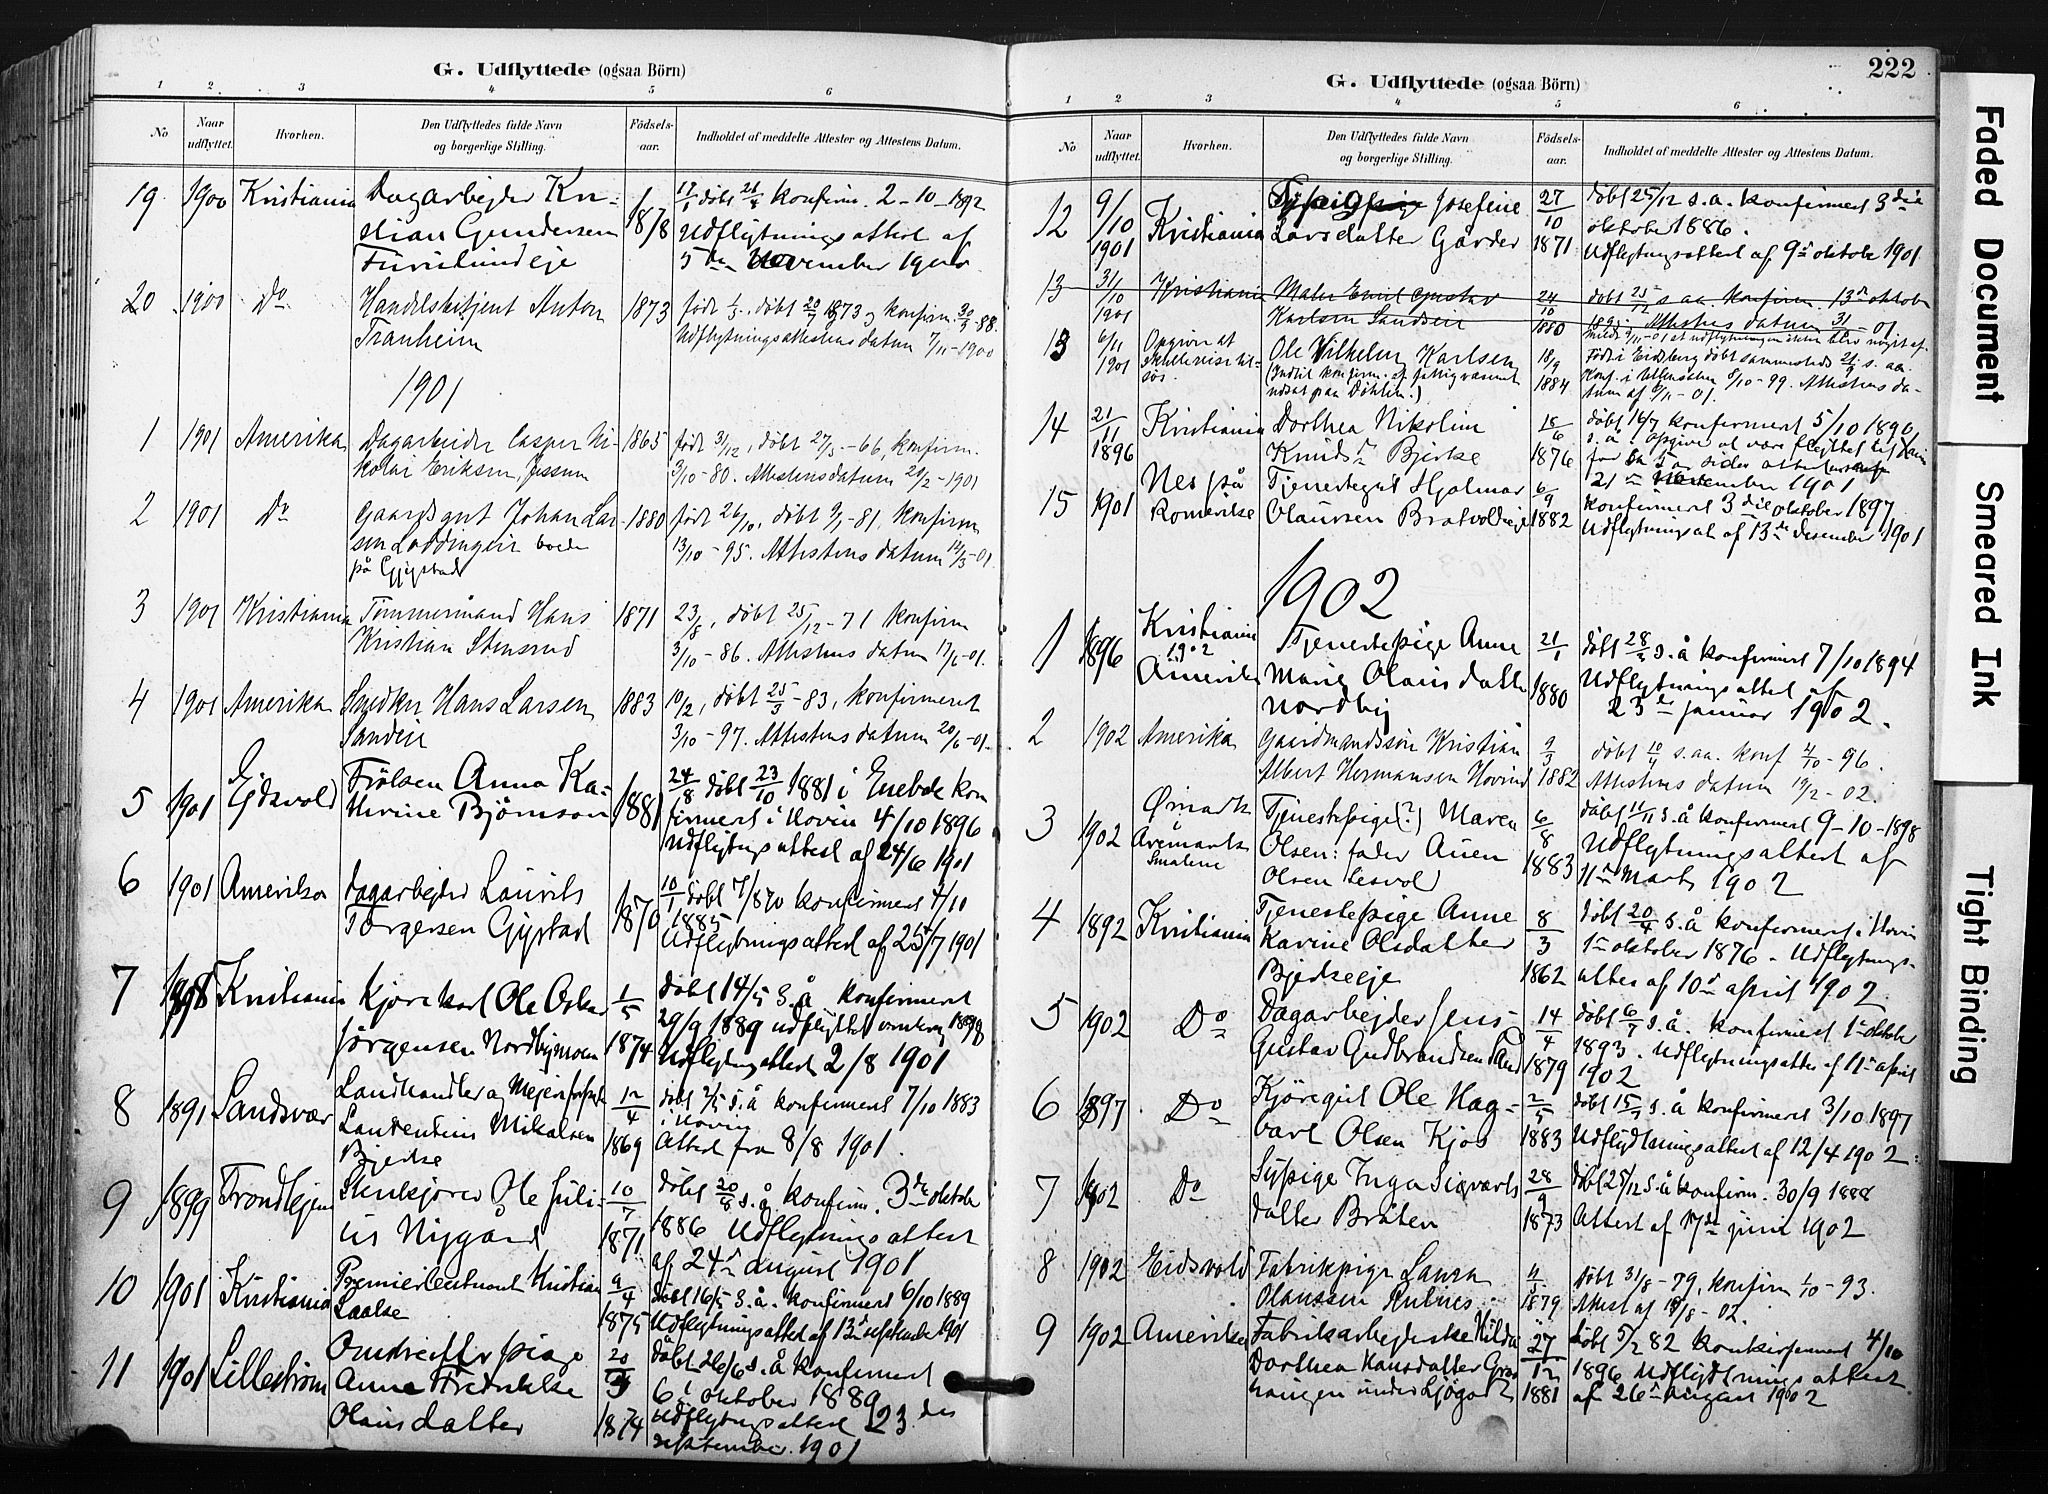 G. Udflyttede (ogsaa Börn)
1 2 3 4 5 6
No
Naar udflyttet.
Hvorhen.
Den Udflyttedes fulde Navn og borgerlige Stilling.
Födsels-aar.
Indholdet af meddelte Attester og Attestens Datum.
19 1900 Kristiania Dagarbejder Kri- 17/1 döbt 21/4 konfirm. 2-10-1892
stian Gundersen 1878 Udflytningsattest af
5te November 1900
20 1900 Do Handelsbetjent Anton 1873 född döbt 1873 og konfirm. 88.
Tranheim Udflytningsattestens datum 7/11-1900
1901
1 1901 Amerika Dagarbeider Casper Ni- 1865 född 31/12, döbt 27/5-66, konfirm.
kolai Eriksen, Jessum 3/10-80. Attestens datum 21/2-1901
2 1901 Do Gaardsgut Johan Lar- 1880 född 26/10, döbt 9/1-81, konfirm
sen Loddingeie boede 13/10-95. Attestens datum 12/3-01.
på Gjystad
3 1901 Kristiania Tömmermand Hans 1871 23/8, döbt 25/12-71 konfirm
Kristian Stensrud 3/10-86. Attestens datum 17/6-01.
4 1901 Amerika Snedker Hans Larsen 1883 10/2, döbt 25/3-83, konfirmeret
Sandeie 3/10-97. Attestens datum 20/6-01.
5 1901 Ejdsvold Frölsen Anna Ka- 1881 24/8 döbt 23/10 1881 i Enebak kon
thrine Björnson firmert i Hovin 4/10 1896
Udflytngsattest af 24/6 1901
6 1901 Amerika dagarbejder Laurits 1870 10/1 döbt 7/ 1870 konfirmert 4/10
Torgersen Gjystad 1885
Udflytningsattest af 25/7 1901
7 1898 Kristiania Kjörekarl Ole Oskar 1/5 döbt 14/5 s.å konfirmeret
29/9 1889 udflyttet omkring 1898
Jörgensen Nordbymoen 1874 Udflytngsattest 2/8 1901
8 1891 Sandsvær Landhandler og Mejeriforpakt 12/4 döbt 2/5 s.å konfirmeret 7/10 1883
i Hovin
Laurentius Mikalsen 1869 Attest fra 8/8 1901.
Bjerke
9 1899 Trondhjem Stenkjörer Ole Juli- 10/7 döbt 20/8 s.å konfirm. 3die oktobr
us Nygård 1871 1886 Udflytningsattest
af 24de august 1901
10 1901 Kristiania Premierleutnant Kristian 9/4 döbt 16/5 s.å. konfirmert 6/10 1889
Laake 1875 Udflytningsattest af 13de september 1901
11 1901 Lilleström pige 20/3 döbt 26/6 s.å konfirmert
Anne Fredrikke 6 oktober 1889
Olausdatter 1874 Udflytngsattest 23 des
september 1901
222
G. Udflyttede (ogsaa Börn)
1 2 3 4 5 6
No
Naar udflyttet.
Hvorhen.
Den Udflyttedes fulde Navn og borgerlige Stilling.
Födsels-aar.
Indholdet af meddelte Attester og Attestens Datum.
12 9/10 1901 Kristiania Sypige Josefine 27/10 döbt 25/12 s.a. konfirmert 3die
oktober 1886.
Larsdatter Gårder 1871 Udflytngsattest af 9de oktobr 1901
13 31/10 1901 Kristiania Maler Emil Gustav 24/10 döbt 25/12 s aa. konfirm. 13de oktober
Karlsen Sandeie 1880 Attestens datum 31-01.
13 6/11 1901 Opgiver at Ole Vilhelm Karlsen 18/9 Född i Eidsberg döbt sammesteds s. aa.
1884 Konf. i Ullensaker 8/10-99. Attestens da-
tum af 6/11-01.
14 21/11 1896 Kristiania Dorthea Nikoline 18/6 döbt 16/7 konfirmert 5/10 1890
Knudsdr Bjerke 1876 for 5 år siden attest
21de November 1901
15 1901 Nes på Romerike Tjenestegut Hjalmar 6/9 konfirmert 3die oktober 1897
Olaussen Bratvoldeje 1882 Udflytningsat. af 13de desember 1901
1902
1 1896 Kristiania Tjenestepige Anne 21/1 döbt 28/3 s.å konfirmert 7/10 1894
1902 Amerika Marie Olausdatter 1880 Udflytningsattest af
Nordby 23de januar 1902.
2 1902 Amerika Gaardmandssön Kristian 9/3 döbt 10/4 s.aa. konf 4/10-96.
Albert Hermansen Hovind 1882 Attestens datum 19/2-02.
3 1902 Ømark Tjenestepige(?) Maren 6/8 döbt 11/11 s.å konfirmert 9-10-1898
Aremark Smalene Olsen: fader Auen 1883 Udflytningsattest af
Olsen Lesvold 11te Marts 1902
4 1892 Kristiania Tjenestepige Anne 8/3 döbt 20/4 s.å konfirmert i Hovin
Karine Olsdatter 1ste oktober 1876. Udflytnings-
Bjerkeeje 1862 attest af 10de april 1902
5 1902 Do Dagarbejder Jens 14/4 döbt 6/7 s.å. konfirmert 1ste oktober
Gustav Gudbrandsen Sand 1879 1893. Udflytningsattest af 11te april
1902
6 1897 Do Kjöregut Ole Hag- 2/5 döbt 15/7 s.å konfirmeret 3/10 1897
bart Olsen Kjos 1883 Udflydtningsattest af 12/4 1902.
7 1902 Do Sypige Inga Sigvarts 28/9 döbt 25/12 s.å konfirm. 30/9 1888
datter Bråten 1873 Attest af 17de juni 1902
8 1902 Eidsvold Fabrikpige Laura döbt 31/8-79, konfirm 1/10-93.
Olaussen 1879 Attest af 18/8-02.
9 1902 Amerika Fabrikarbejderske Hilda 27/12 döbt 5/2 82 konfirmert 4/10
Dorthea Hansdatter 1896 Udflydtningsattest
under Sjögard 1881 af 26de August 1902
Faded Document
Smeared Ink
Tight Binding